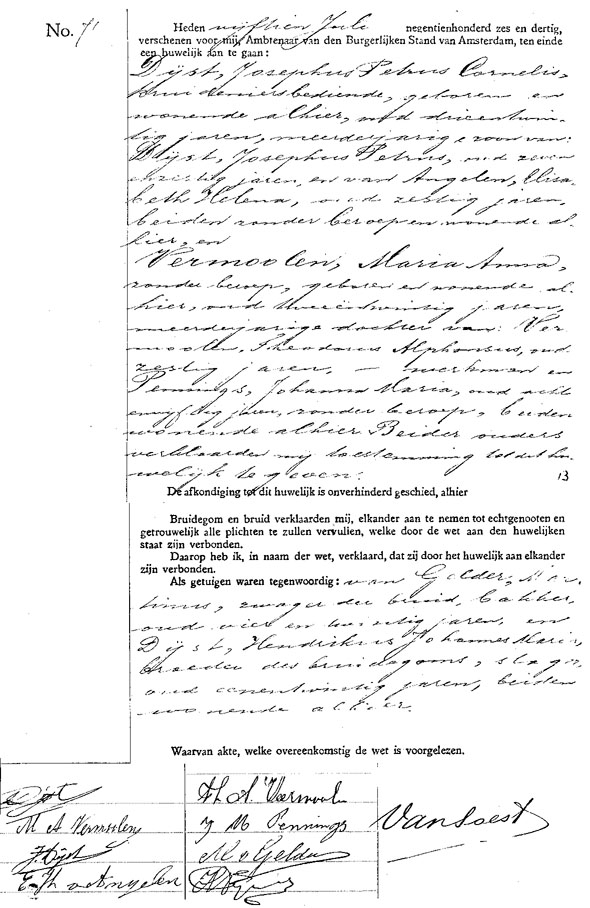 No. 71
Heden vijftien Juli negentienhonderd zes en dertig,
verschenen voor mij, Ambtenaar van den Burgerlijken Stand van Amsterdam, ten einde
een huwelijk aan te gaan:
Dijst, Josephus Petrus Cornelis,
kruideniersbediende, geboren en
wonende alhier, oud drieentwin-
tig jaren, meerderjarige zoon van:
Dijst, Josephus Petrus, oud zeven
enzestig jaren, en van Angelen, Elisa-
beth Helena, oud zestig jaren,
beiden zonder beroep en wonende al-
hier, en
Vermoolen, Maria Anna,
zonder beroep, geboren en wonende al-
hier, oud tweeëntwintig jaren,
meerderjarige dochter van: Ver-
moolen, Theodorus Alphonsus, oud
zestig jaren, – werkman en
Pennings, Johanna Maria, oud acht
envijftig jaren, zonder beroep, beiden
wonende alhier. Beider ouders
verklaarden mij toestemming tot dit hu-
welijk te geven.
13
De afkondiging tot dit huwelijk is onverhinderd geschied, alhier
Bruidegom en bruid verklaarden mij, elkander aan te nemen tot echtgenooten en
getrouwelijk alle plichten te zullen vervullen, welke door de wet aan den huwelijken
staat zijn verbonden.
Daarop heb ik, in naam der wet, verklaard, dat zij door het huwelijk aan elkander
zijn verbonden.
Als getuigen waren tegenwoordig: van Gelder, Mar-
tinus, zwager der bruid, bakker,
oud vier en twintig jaren, en
Dijst, Hendrikus Johannes Maria,
broeder des bruidegoms, slager,
oud eenentwintig jaren, beiden
wonende alhier.
Waarvan akte, welke overeenkomstig de wet is voorgelezen.
Dijst
M A Vermoolen
J. Dijst
E. H. v Angelen
Th. A. Vermoolen
J M Pennings
M v Gelder
Van Soest